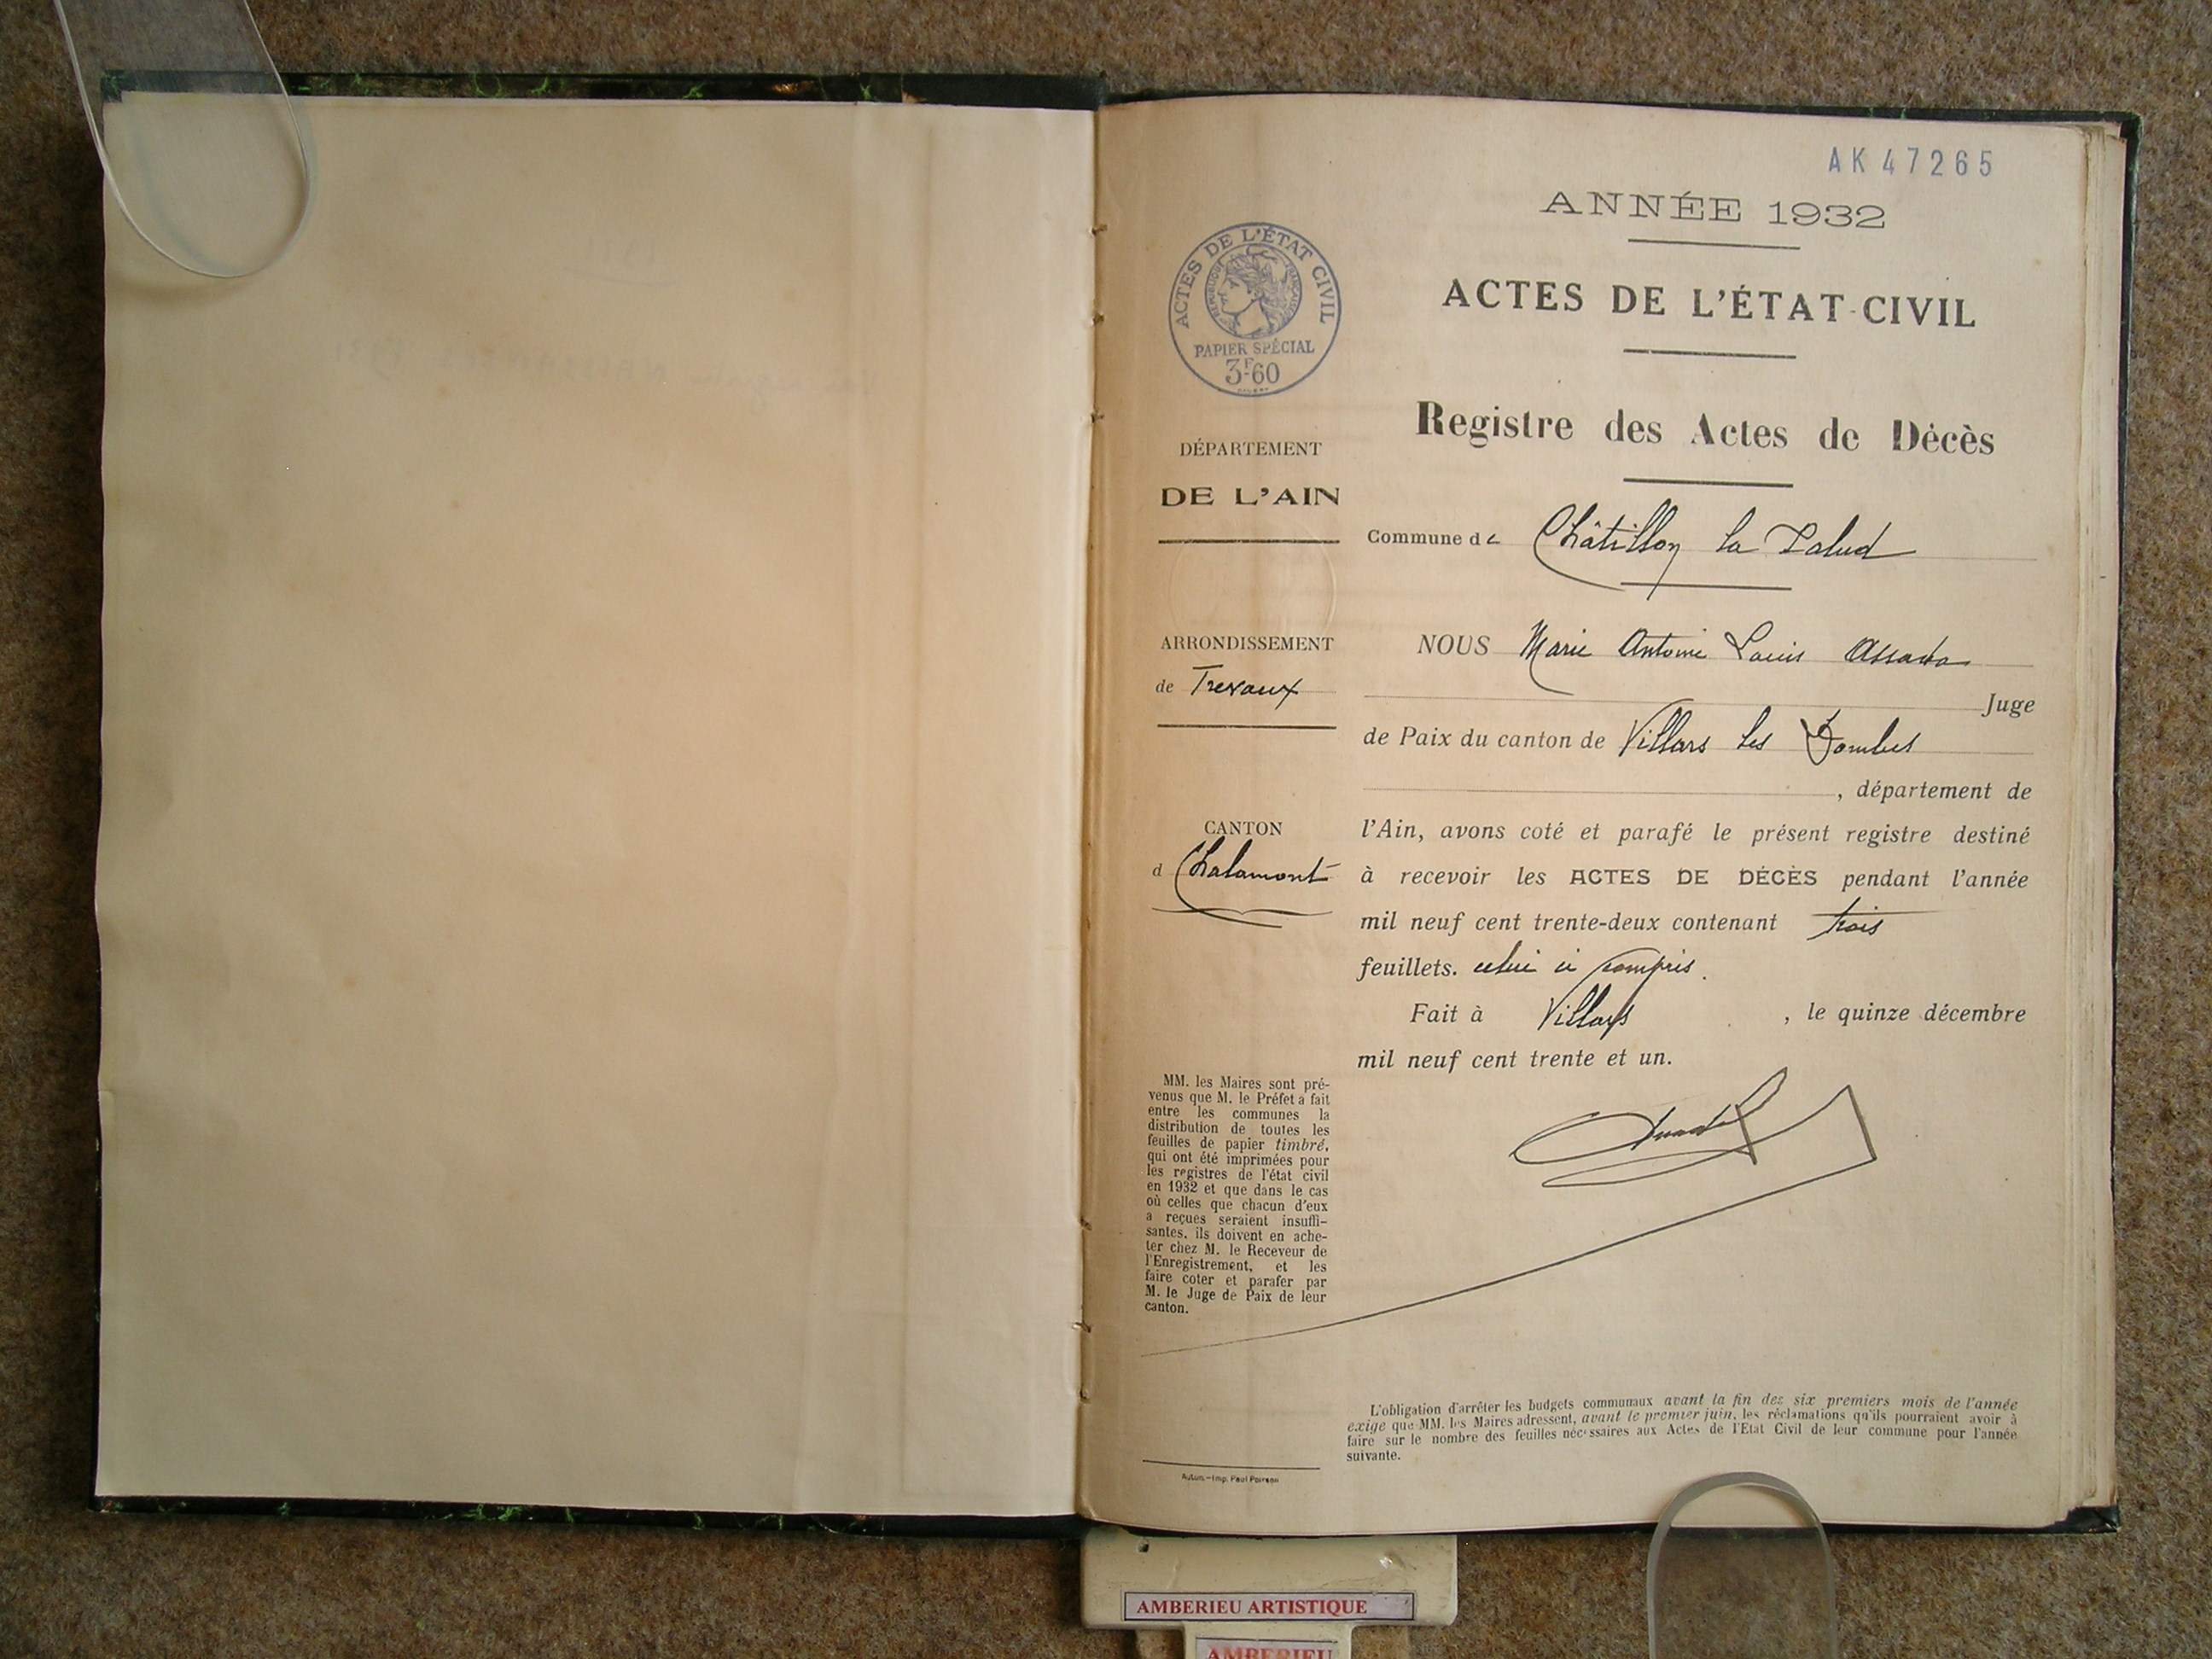 AK 47265
ANNÉE 1932
ACTES DE L'ÉTAT-CIVIL
Registre des Actes de Décès
Commune de Châtillon la Palud
ACTES DE L'ÉTAT CIVIL
RÉPUBLIQUE FRANÇAISE
PAPIER SPÉCIAL
3F60
DÉPARTEMENT
DE L'AIN
ARRONDISSEMENT
de Trevoux
CANTON
d Chalamont
NOUS Marie Antoine Louis
Juge
de Paix du canton de Villars les Dombes
, département de
l'Ain, avons coté et parafé le présent registre destiné
à recevoir les ACTES DE DÉCÈS pendant l'année
mil neuf cent trente-deux contenant trois
feuillets. celui ci compris.
Fait à Villars , le quinze décembre
mil neuf cent trente et un.
MM. les Maires sont pré-
venus que M. le Préfet a fait
entre les communes la
distribution de toutes les
feuilles de papier timbré,
qui ont été imprimées pour
les registres de l'état civil
en 1932 et que dans le cas
où celles que chacun d'eux
a reçues seraient insuffi-
santes, ils doivent en ache-
ter chez M. le Receveur de
l'Enregistrement, et les
faire coter et parafer par
M. le Juge de Paix de leur
canton.
L'obligation d'arrêter les budgets communaux avant la fin des six premiers mois de l'année
exige que MM. les Maires adressent, avant le premier juin, les réclamations qu'ils pourraient avoir à
faire sur le nombre des feuilles nécessaires aux Actes de l'Etat Civil de leur commune pour l'année
suivante.
Autun.—Imp. Paul Poirson
AMBERIEU ARTISTIQUE
AMBERIEU